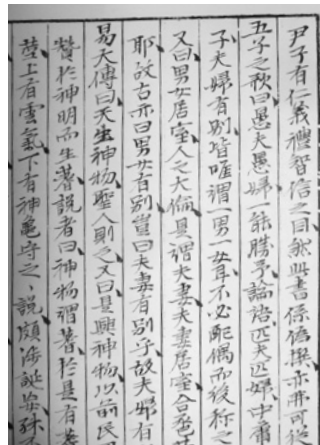 尹子有仁義禮智信之目然此書係偽撰亦無可從
五子之歌曰愚夫愚婦一能勝予論語匹夫匹婦中庸
子夫婦有別皆唯謂一男一女耳不必配偶而後称之
又曰男女居室人之大倫是謂夫妻夫妻居室合
耶故古亦曰男女有別豈曰夫妻有別乎故夫婦有
易大傳曰天生神物聖人則之又曰是興神物以前民
贊於神明而生蓍說者曰神物謂蓍於是有
蓍上有雲氣下有神龜守之說頗涉誕妄殊